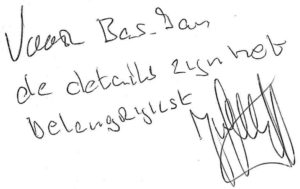 Voor Bas-Jan
de details zijn het
belangrijkst